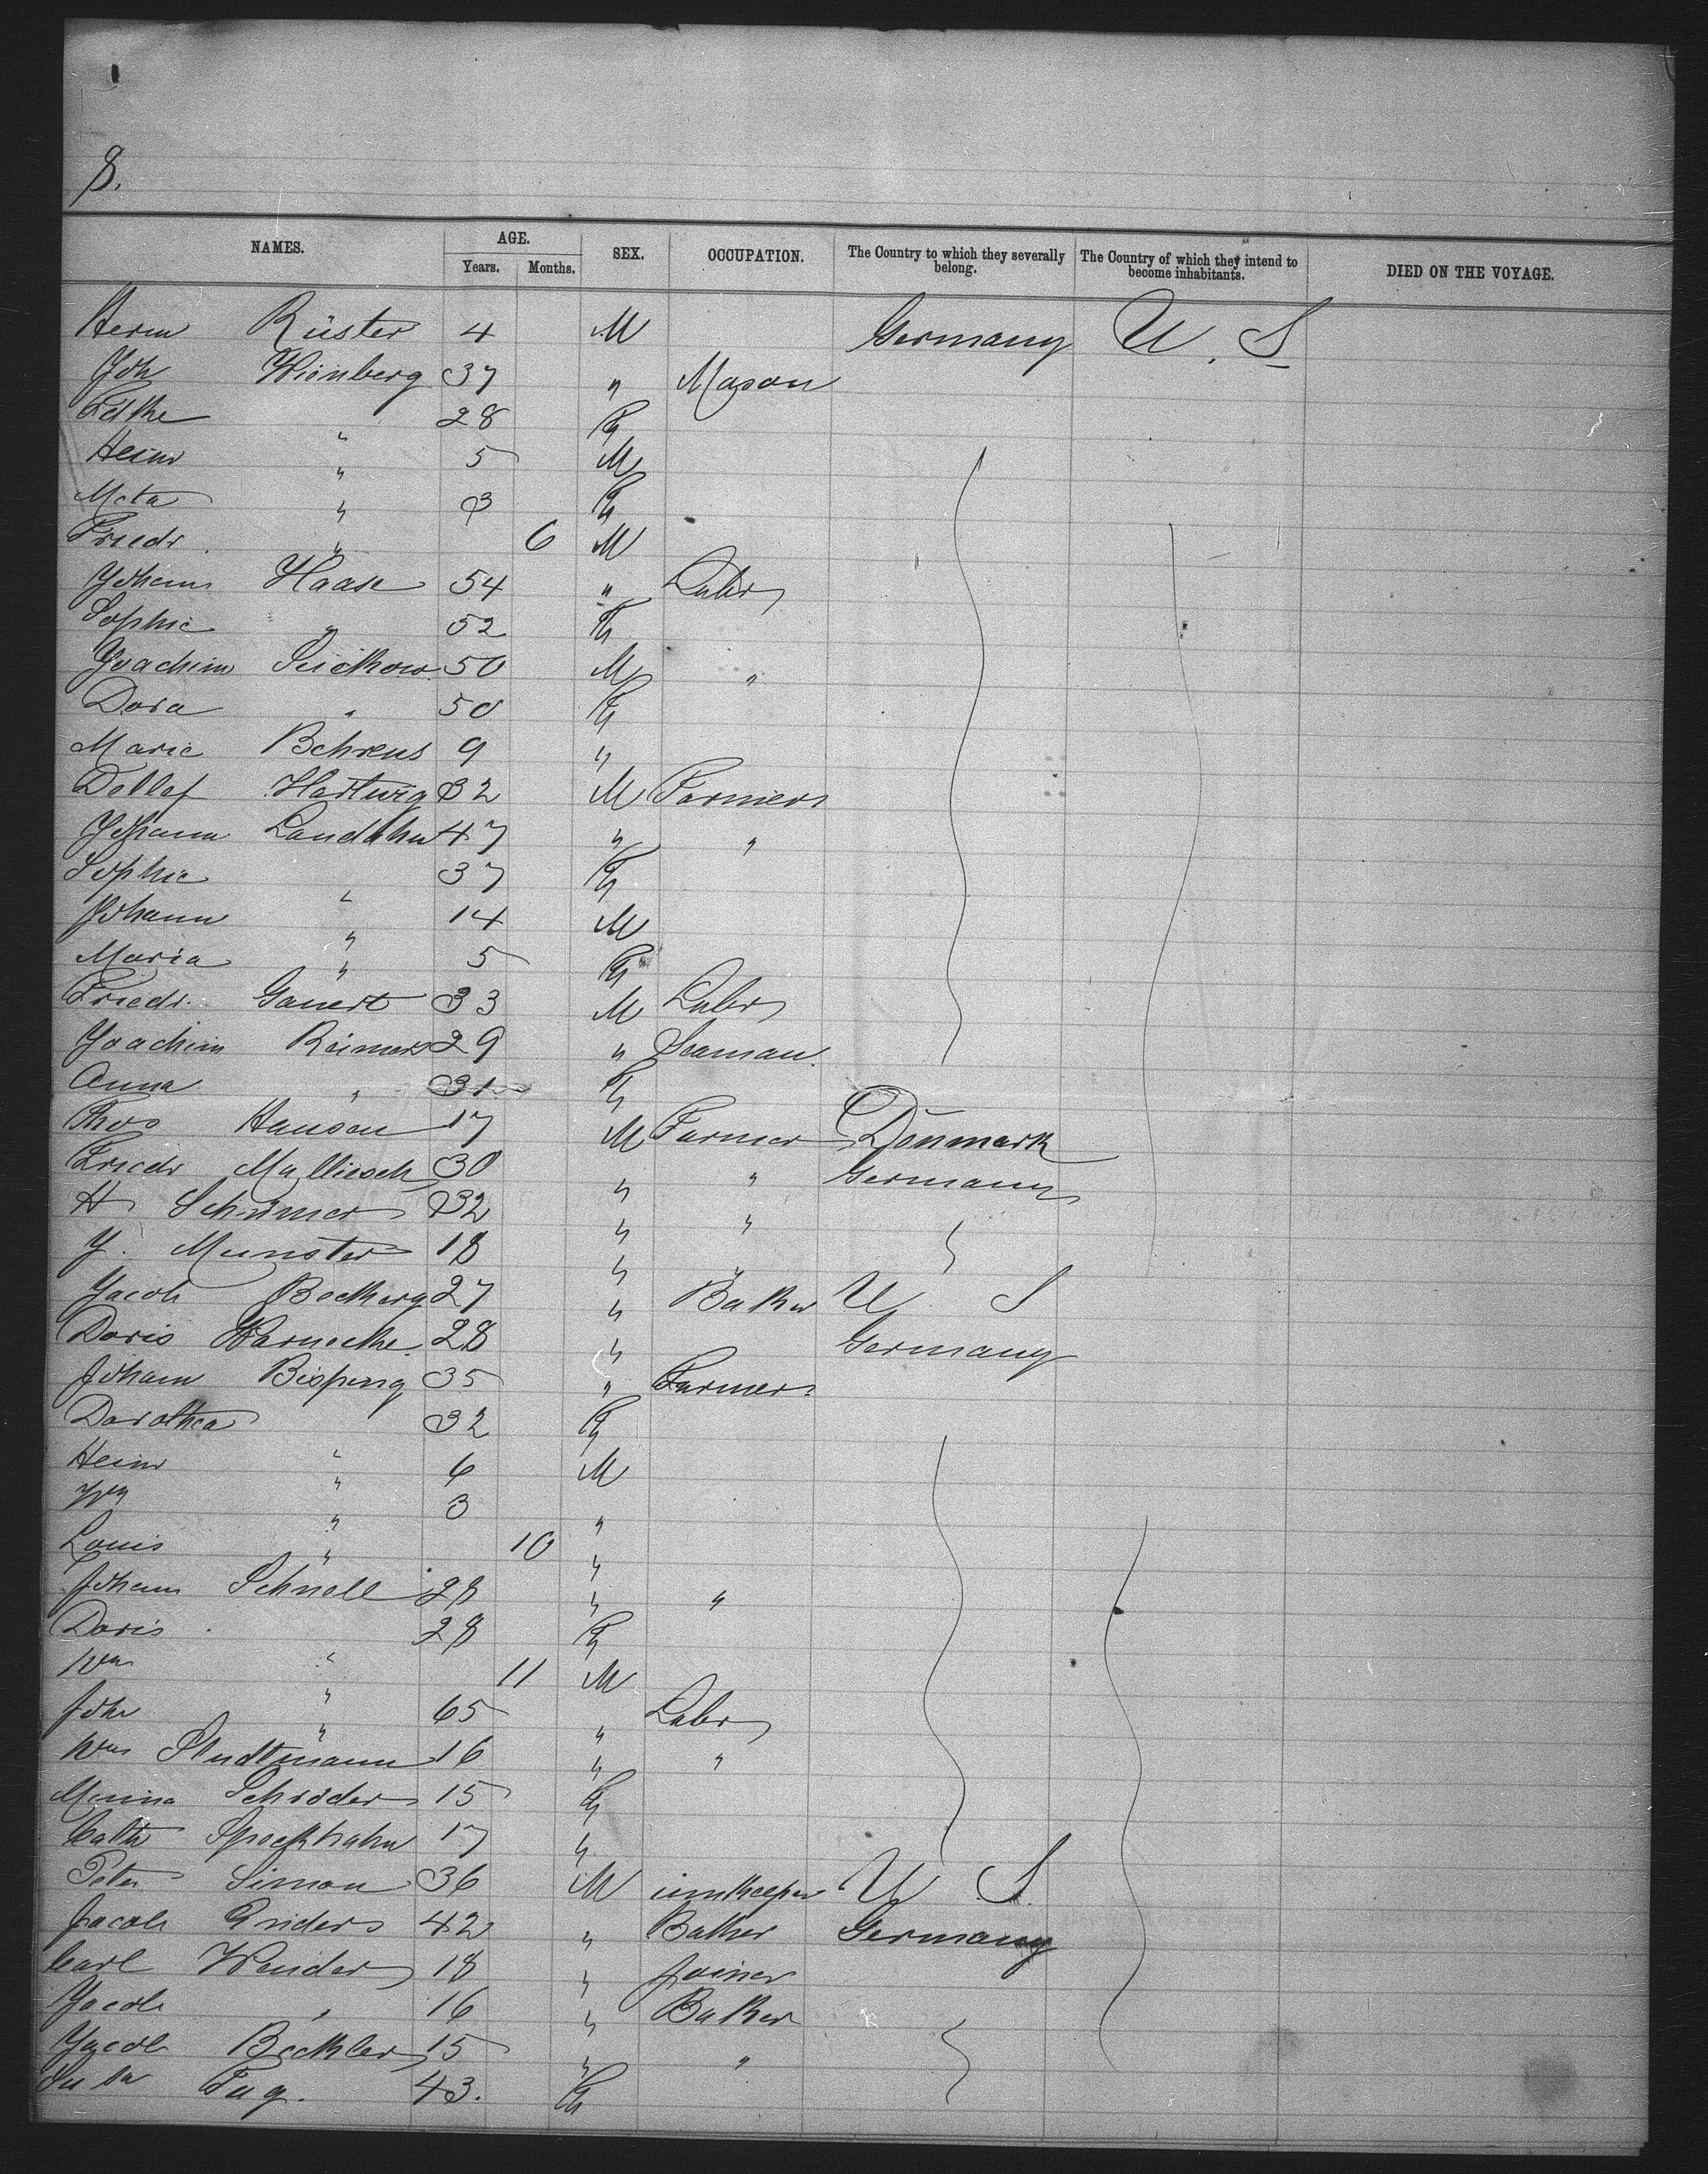 8.
NAMES. AGE. Years. Months. SEX. OCCUPATION. The Country to which they severally belong. The Country of which they intend to become inhabitants. DIED ON THE VOYAGE.
Herm Rüster 4 M Germany U. S
Joh Wienberg 37 " Mason
28 F
Heinr " 5 M
Meta " 3 F
Friedr. " 6 M
Johann Haase 54 " Labr
Sophie " 52 F
Joachim 50 M "
Dora " 50 F
Marie Behrens 9 "
Detlef Hartwig 32 M Farmer
Johann 47 " "
Sophie " 37 F
Johann " 14 M
Maria " 5 F
Friedr. Gauert 33 M Labr
Joachim Reimers 29 " Seaman
Anna " 31 F
Hansen 17 M Farmer Denmark
Friedr 30 " " Germany
H 32 " "
J. Munster 18 " "
Jacob 27 " Baker U S
Doris Warnecke 28 " Germany
Johann Bisping 35 " Farmer
Dorothea " 32 F
Heinr " 6 M
Wm " 3 "
Louis " 10 "
Johann Schnell 28 " "
Doris " 28 F
Wm " 11 M
Joh " 65 " Labr
Wm Studtmann 16 " "
Minna Schröder 15 F
Cath Spockhahn 17 "
Peter Simon 36 M innkeeper U S
Jacob 42 " Baker Germany
Carl 18 " Joiner
Jacob " 16 " Baker
Jacob Beckler 15 " "
43. F